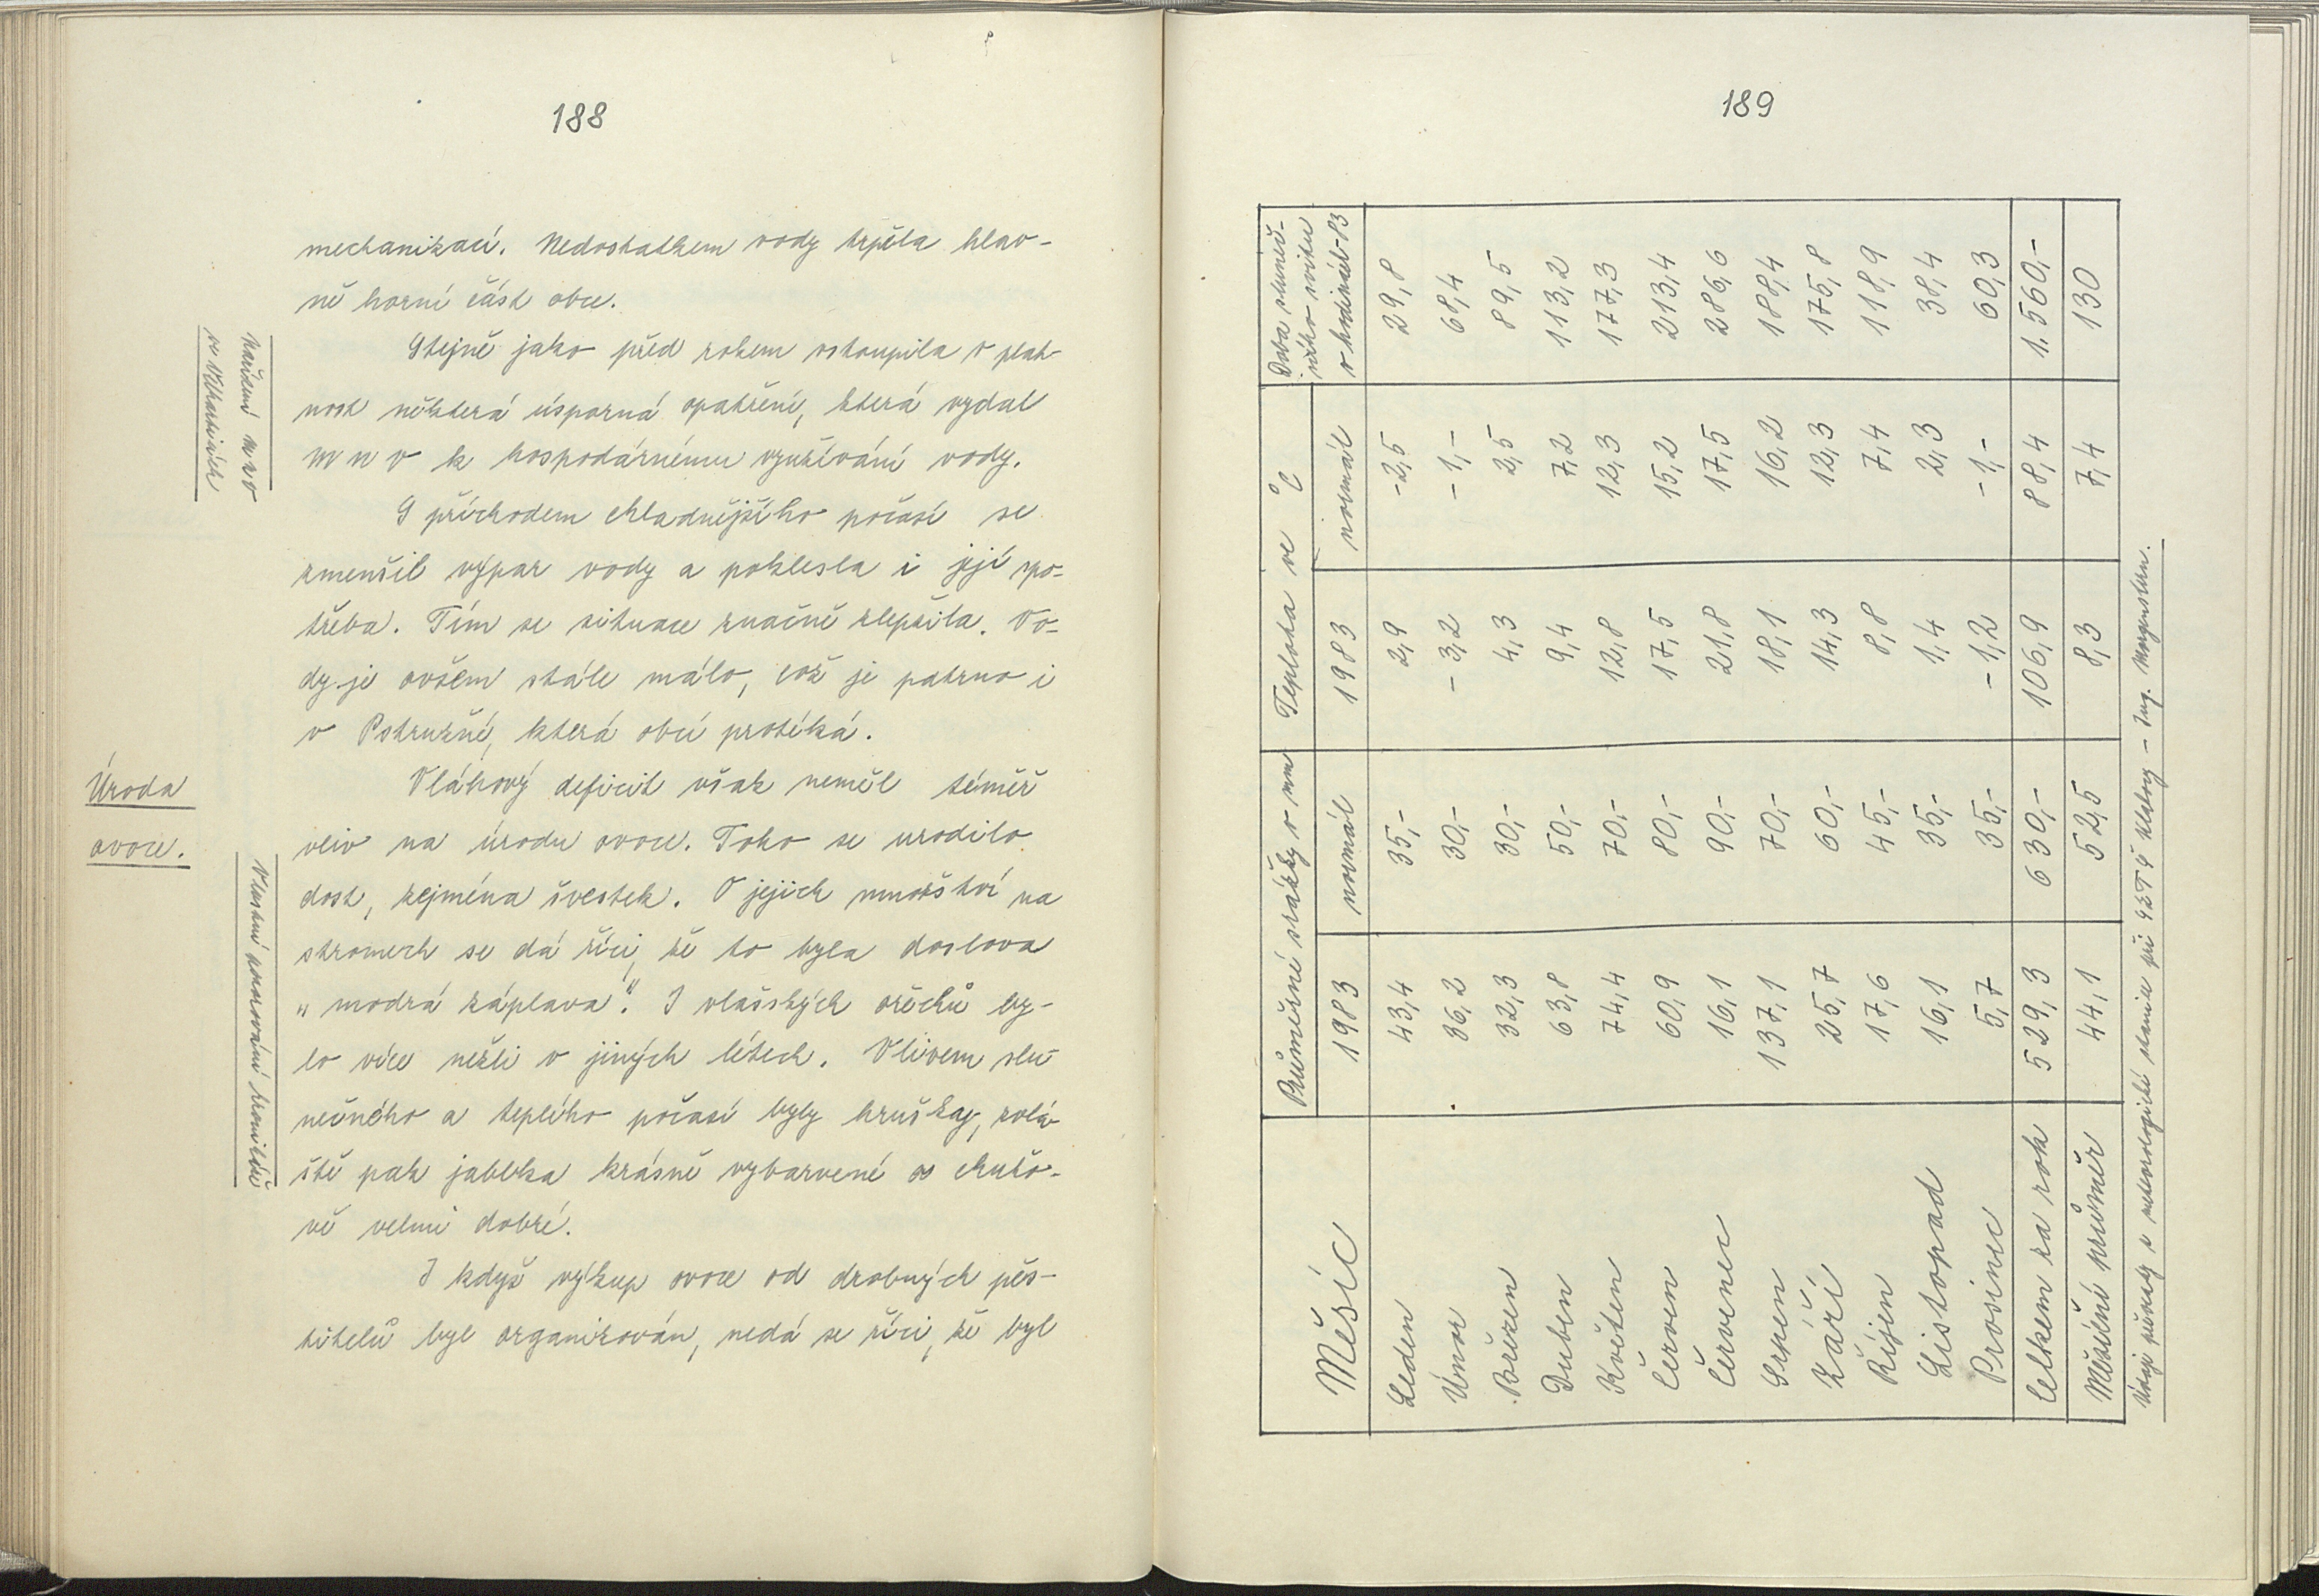 188
mechanizací. Nedostatkem vody trpěla hlav-
ně horní část obce.
Stejně jako před rokem vstoupila v plat-
nost některá úsporná opatření, která vydal
MNV k hospodárnému využívání vody.
S příchodem chladnějšího počasí se
zmenšil výpar vody a poklesla i její spo-
třeba. Tím se situace značně zlepšila. Vo-
dy je ovšem stále málo, což je patrno i
v Pstružné, která obcí protéká.
Vláhový deficit však neměl téměř
vliv na úrodu ovoce. Toho se urodilo
dost, zejména švestek. O jejich množství na
stromech se dá říci, že to byla doslova
„modrá záplava". I vlašských ořechů by-
lo více nežli v jiných létech. Vlivem slu-
nečného a teplého počasí byly hrušky, zvlá-
ště pak jablka krásně vybarvené a chuťo-
vě velmi dobré.
I když výkup ovoce od drobných pěs-
titelů byl organizován, nedá se říci, že byl
Nařízení MNV
ve Vlhaticích
Úroda
ovoce.
Vlastní pozorování kronikáře
189
Měsíc Průměrné srážky v mm Teplota ve °C Doba sluneč-
ního svitu
v hodinách - 83
1983 normál 1983 normál
Leden 43,4 35,- 2,9 -2,5 29,8
Únor 36,2 30,- -3,2 -1,- 68,4
Březen 32,3 30,- 4,3 2,5 89,5
Duben 63,8 50,- 9,4 7,2 113,2
Květen 74,4 70,- 12,8 12,3 177,3
Červen 60,9 80,- 17,5 15,2 213,4
Červenec 16,1 90,- 21,8 17,5 286,6
Srpen 137,1 70,- 18,1 16,2 188,4
Září 25,7 60,- 14,3 12,3 175,8
Říjen 17,6 45,- 8,8 7,4 118,9
Listopad 16,1 35,- 1,4 2,3 38,4
Prosinec 5,7 35,- -1,2 -1,- 60,3
Celkem za rok 529,3 630,- 106,9 88,4 1.560,-
Měsíční průměr 44,1 52,5 8,3 7,4 130
Údaje převzaty z meteorologické stanice při SZTŠ Klatovy - Ing. Morgenstern.